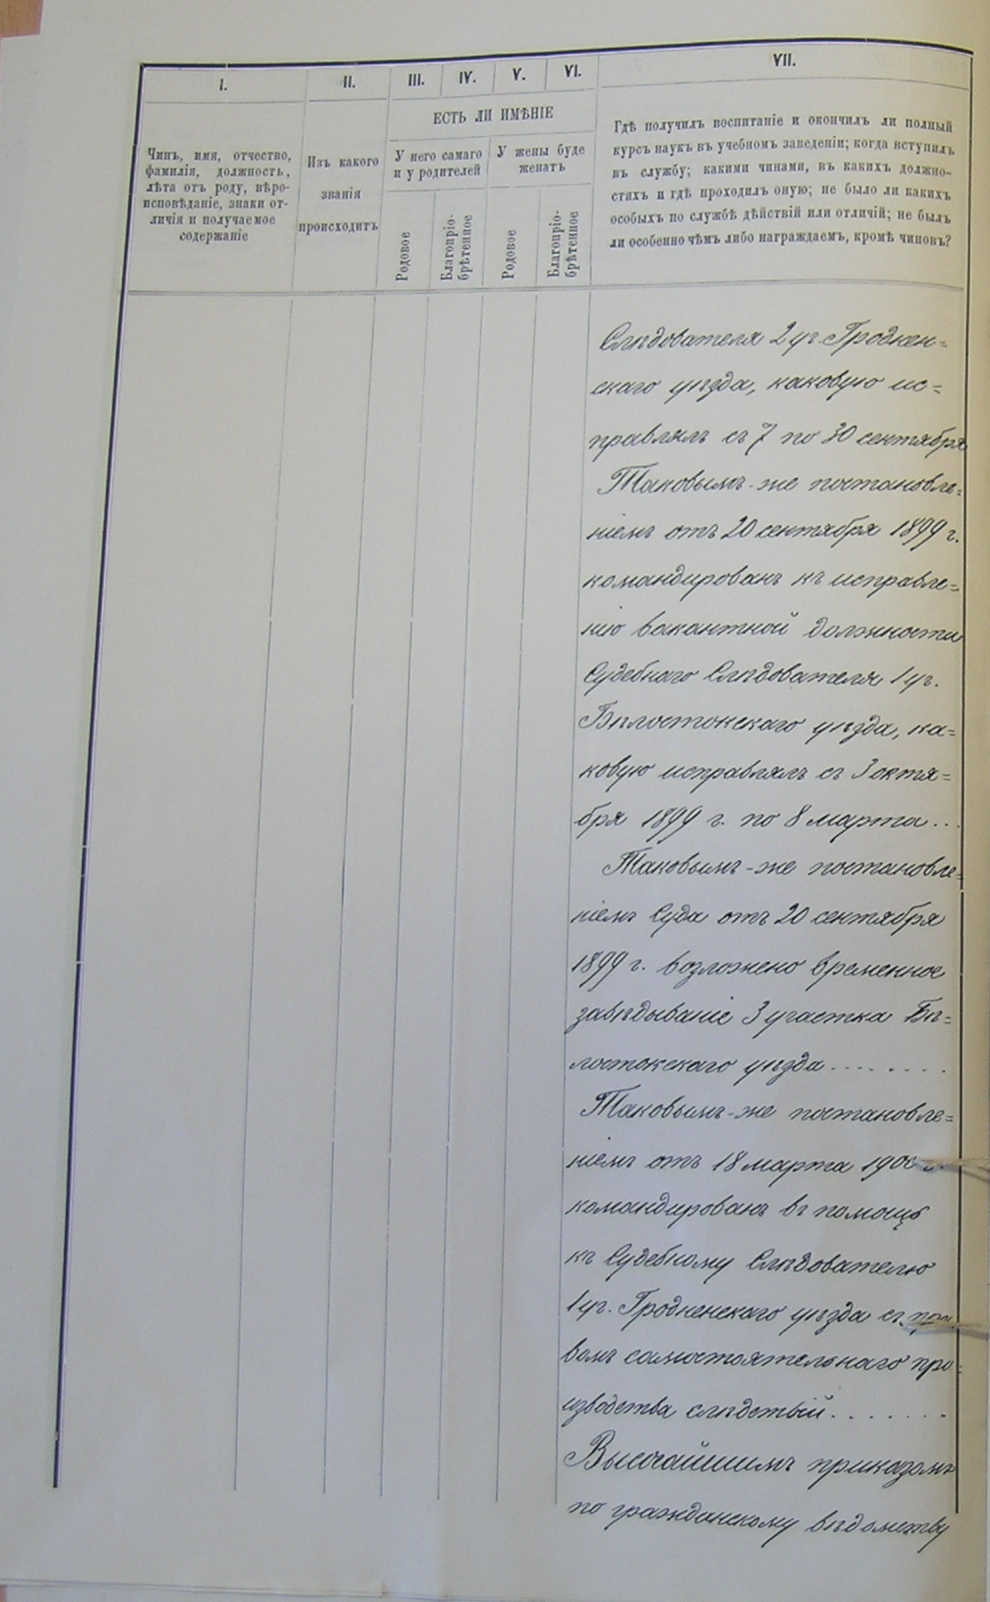 I.
II.
III.
IV.
V.
VI.
VII.
ЕСТЬ ЛИ ИМѢНІЕ
Чинъ, имя, отчество,
фамилія, должность,
лѣта отъ роду, вѣро-
исповѣданіе, знаки от-
личія и получаемое
содержаніе
Изъ какого
званія
происходитъ
У него самаго
и у родителей
У жены буде
женатъ
Родовое
Благопріо-
брѣтенное
Родовое
Благопріо-
брѣтенное
Гдѣ получилъ воспитаніе и окончилъ ли полный
курсъ наукъ въ учебномъ заведеніи; когда вступилъ
въ службу; какими чинами, въ какихъ должно-
стяхъ и гдѣ проходилъ оную; не было ли какихъ
особыхъ по службѣ дѣйствій или отличій; не былъ
ли особенно чѣмъ либо награждаемъ, кромѣ чиновъ?
Слѣдователя 2 уч. Гроднен=
скаго уѣзда, каковую ис=
правлялъ съ 7 по 30 сентября
Таковымъ-же постановле=
ніемъ отъ 20 сентября 1899 г.
командированъ къ исправле=
нію вакантной должности
Судебнаго Слѣдователя 1 уч.
Бѣлостокскаго уѣзда, ка=
ковую исправлялъ съ 3 октя=
бря 1899 г. по 8 марта...
Таковымъ-же постановле=
ніемъ Суда отъ 20 сентября
1899 г. возложено временное
завѣдываніе 3 участка Бѣ=
лостокскаго уѣзда........
Таковымъ-же постановле=
ніемъ отъ 18 марта 1900 г.
командированъ въ помощь
къ Судебному Слѣдователю
1 уч. Гродненскаго уѣзда съ пра
вомъ самостоятельнаго про=
изводства слѣдствій.......
Высочайшимъ приказомъ
по гражданскому вѣдомству